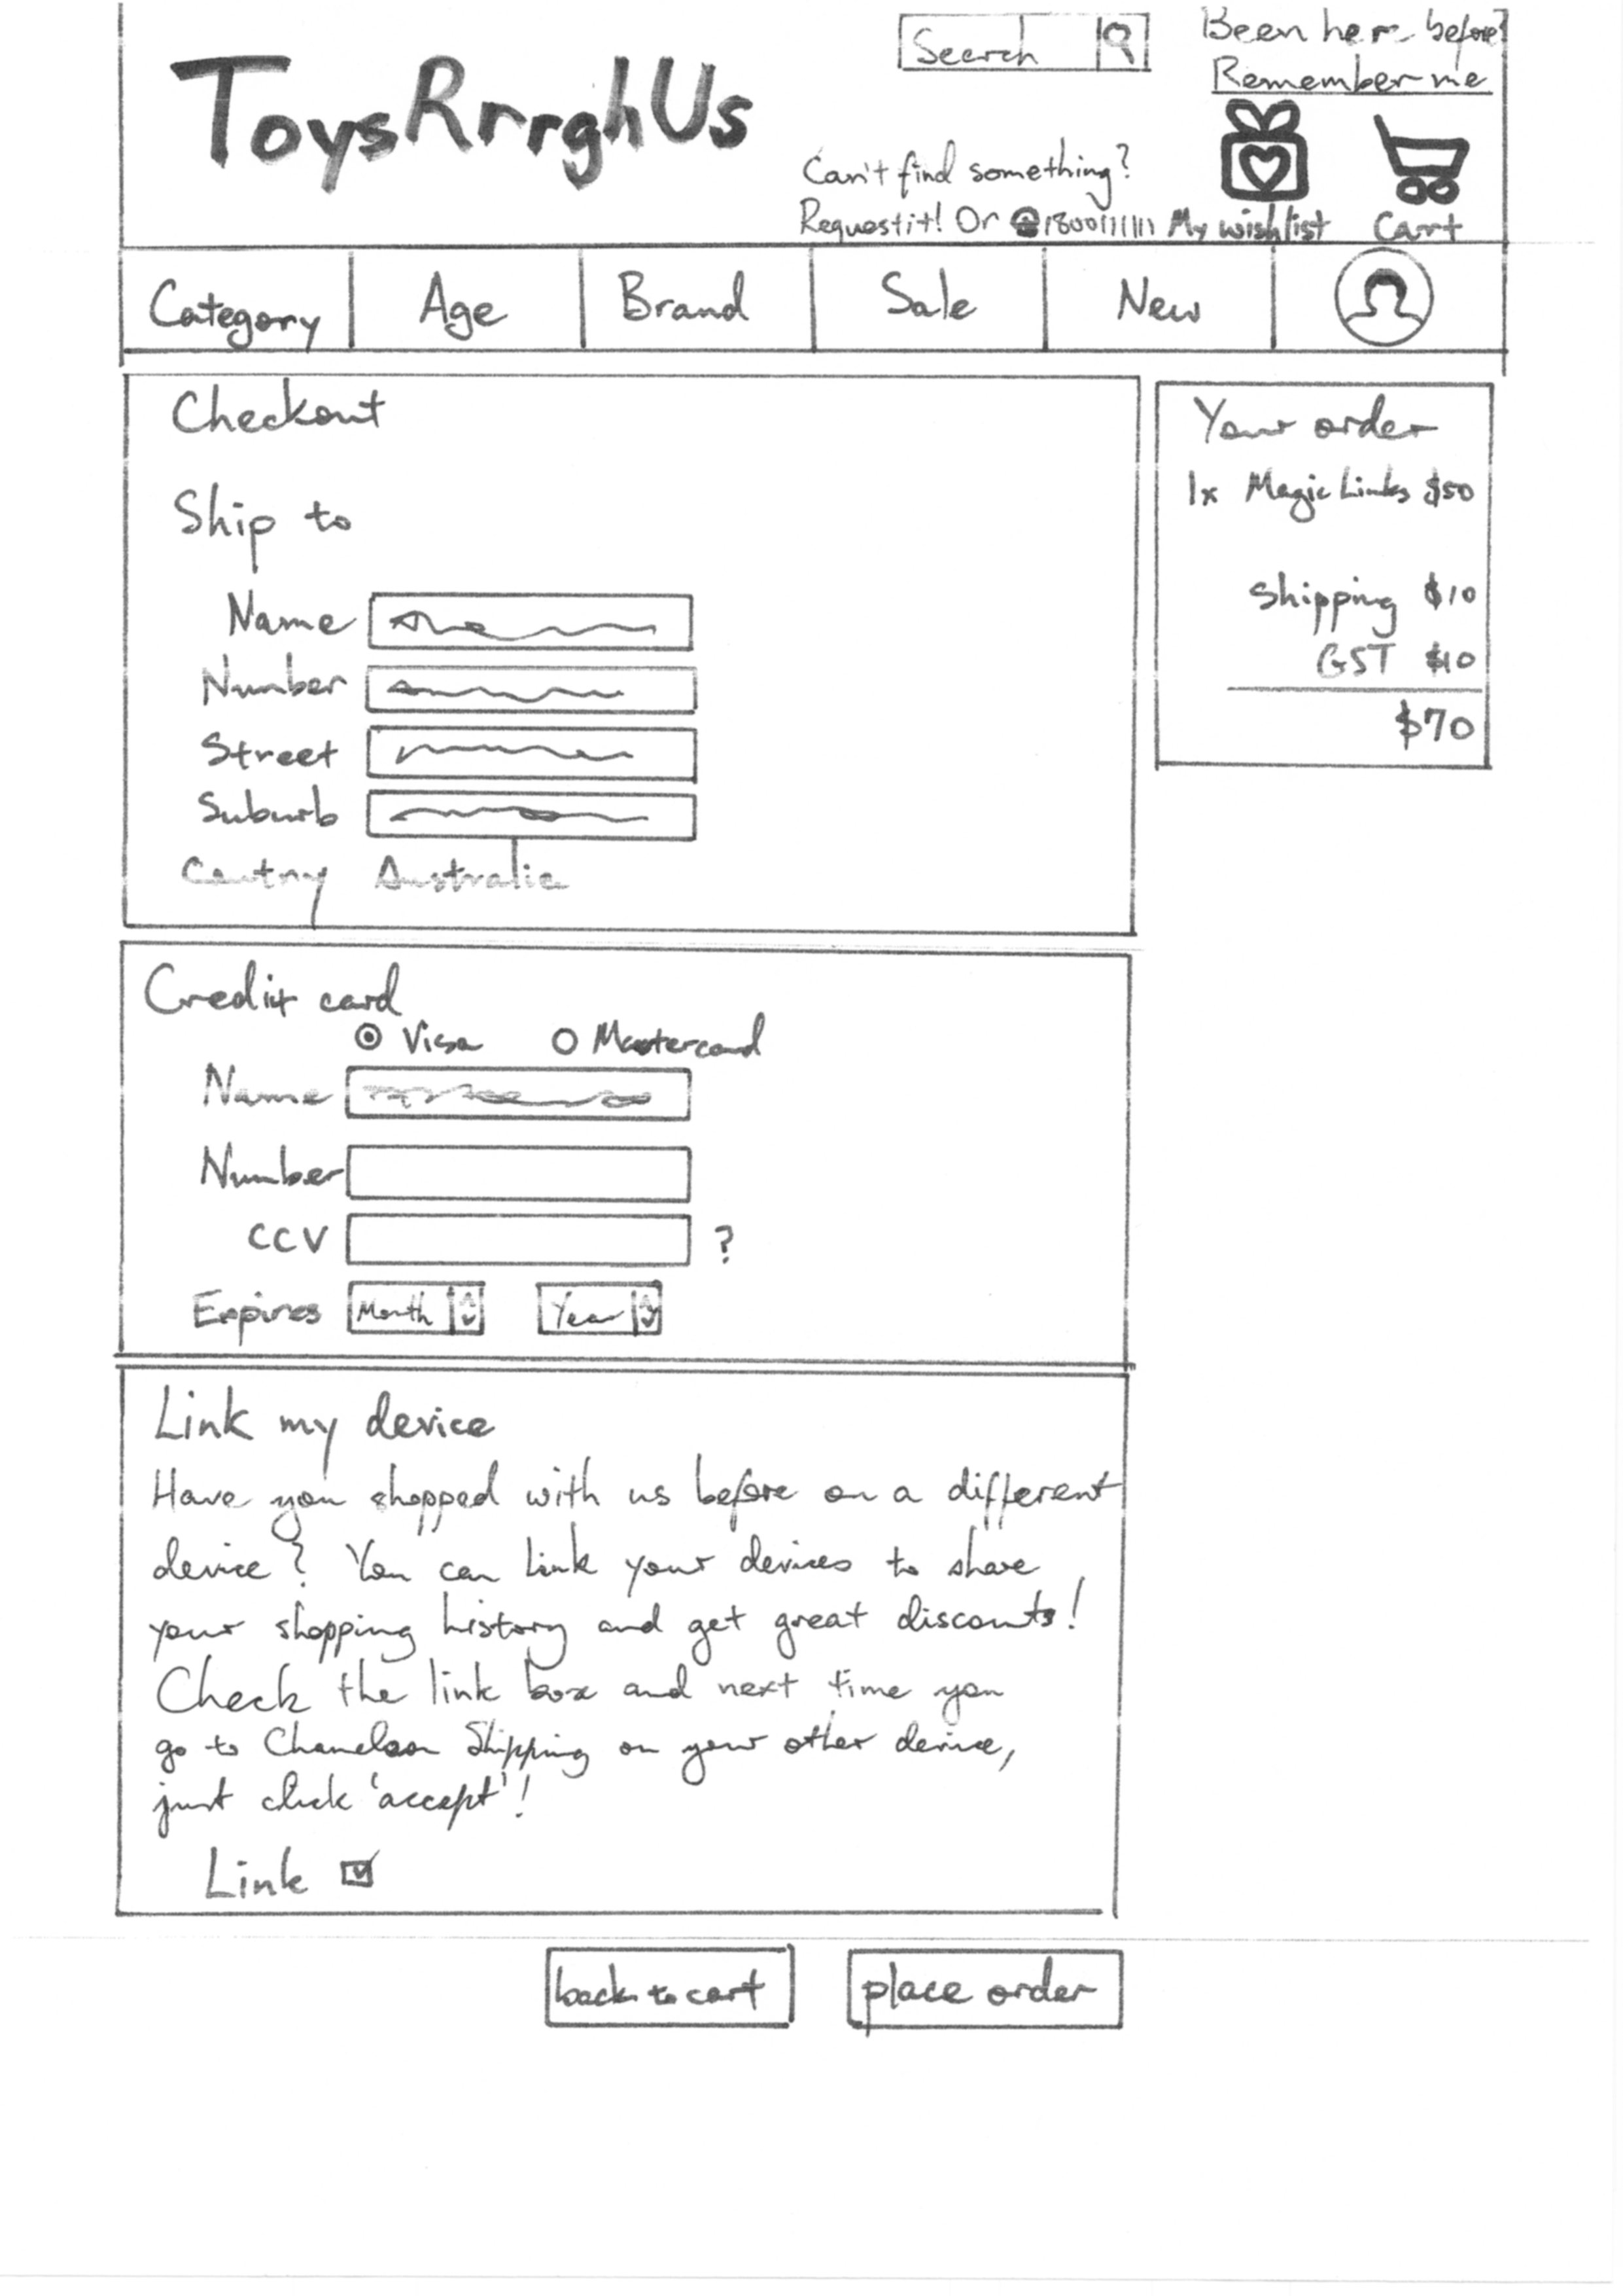 ToysRrrghUs
Search
Been here before?
Remember me
Can't find something?
Request it! Or ☎1800111111
My wishlist
Cart
Category
Age
Brand
Sale
New
Checkout
Ship to
Name
Number
Street
Suburb
Coutny Australia
Your order
1x Magic Links $50
Shipping $10
GST $10
$70
Credit card
Visa
Mastercard
Name
Number
CCV ?
Expires Month Year
Link my device
Have you shopped with us before on a different
device? You can link your devices to share
your shopping history and get great discounts!
Check the link box and next time you
go to Chameleon Shipping on your other device,
just click 'accept'!
Link
back to cart
place order